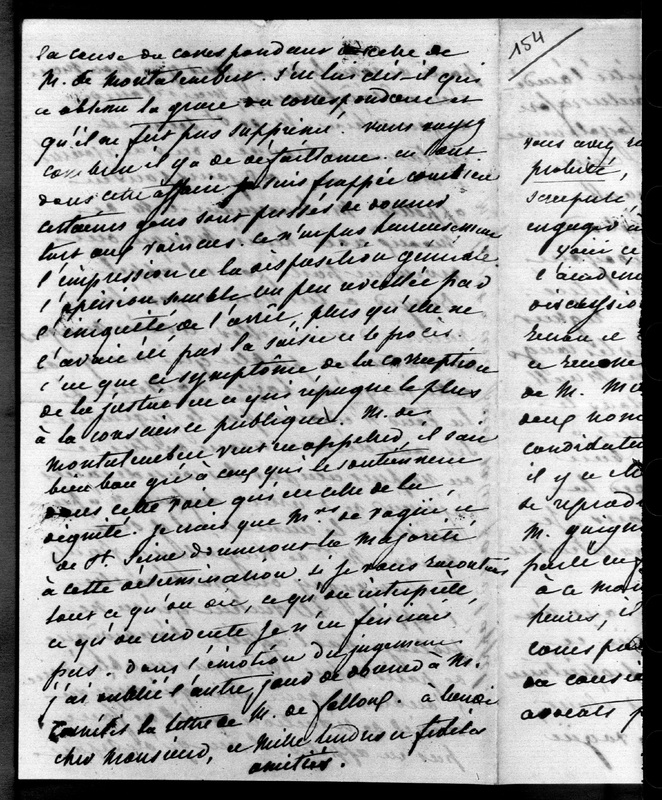 154
la cause du correspondant de celle de
M. de Montalembert. J'en lui dis-il qui
a obtenu la grace du correspondant et
qu'il ne fut pas supprimé. vous voyez
combien il y a de défaillance. en tout
dans cette affaire je suis frappée combien
certaines gens sont pressés de donner
tort aux vaincus. ce n'est pas heureusement
l'impression et la disposition générale
l'opinion semble un peu réveillée par
l'iniquité de l'arrêt, plus qu'elle ne
l'avait été par la saisie et le procès
c'est que ce symptôme de la corruption
de la justice est ce qui répugne le plus
à la conscience publique. M. de
Montalembert veut en appeler, il sait
bien bon gré à ceux qui le soutiennent
dans cette voie qui est celle de la
dignité. je sais que Mrs de et
de St. Seine donneront la majorité
à cette détermination. si je vous racontais
tout ce qu'on dit, ce qu'on interprète,
ce qu'on invente je n'en finirais
pas. dans l'émotion du jugement
j'ai oublié l'autre jour de donner à M.
la lettre de M. de Falloux. à bientôt
cher monsieur, et mille tendres et fidèles
amitiés.
vous avez
probité,
scrupule
engagés à
voici ce
l'académ
discussio
Renan et
ce
de M. M
deux nom
candidatu
il y a
se reprod
M. guign
parlé en
à ce
heures, i
corresp
du consei
avocats p